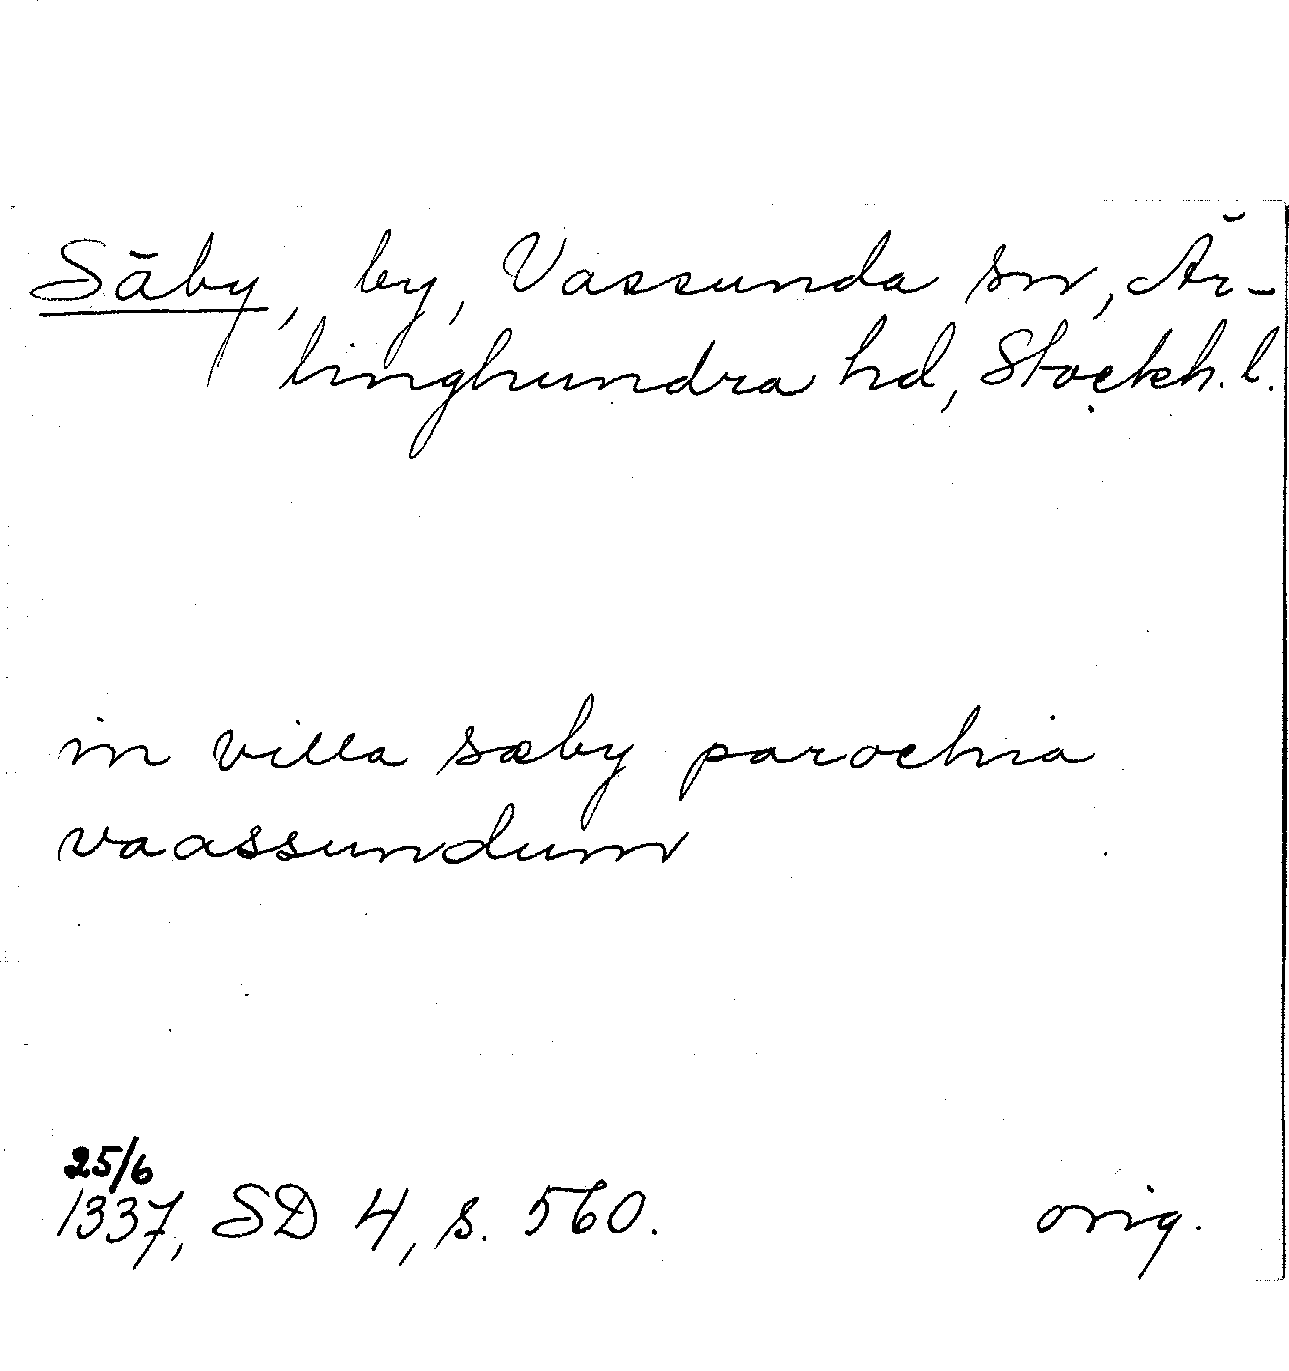 Säby, by, Vassunda sn, Är-
linghundra hd, Stockh. l.
in villa sæby parochia
vaassundum
25/6
1337, SD 4, s. 560. orig.